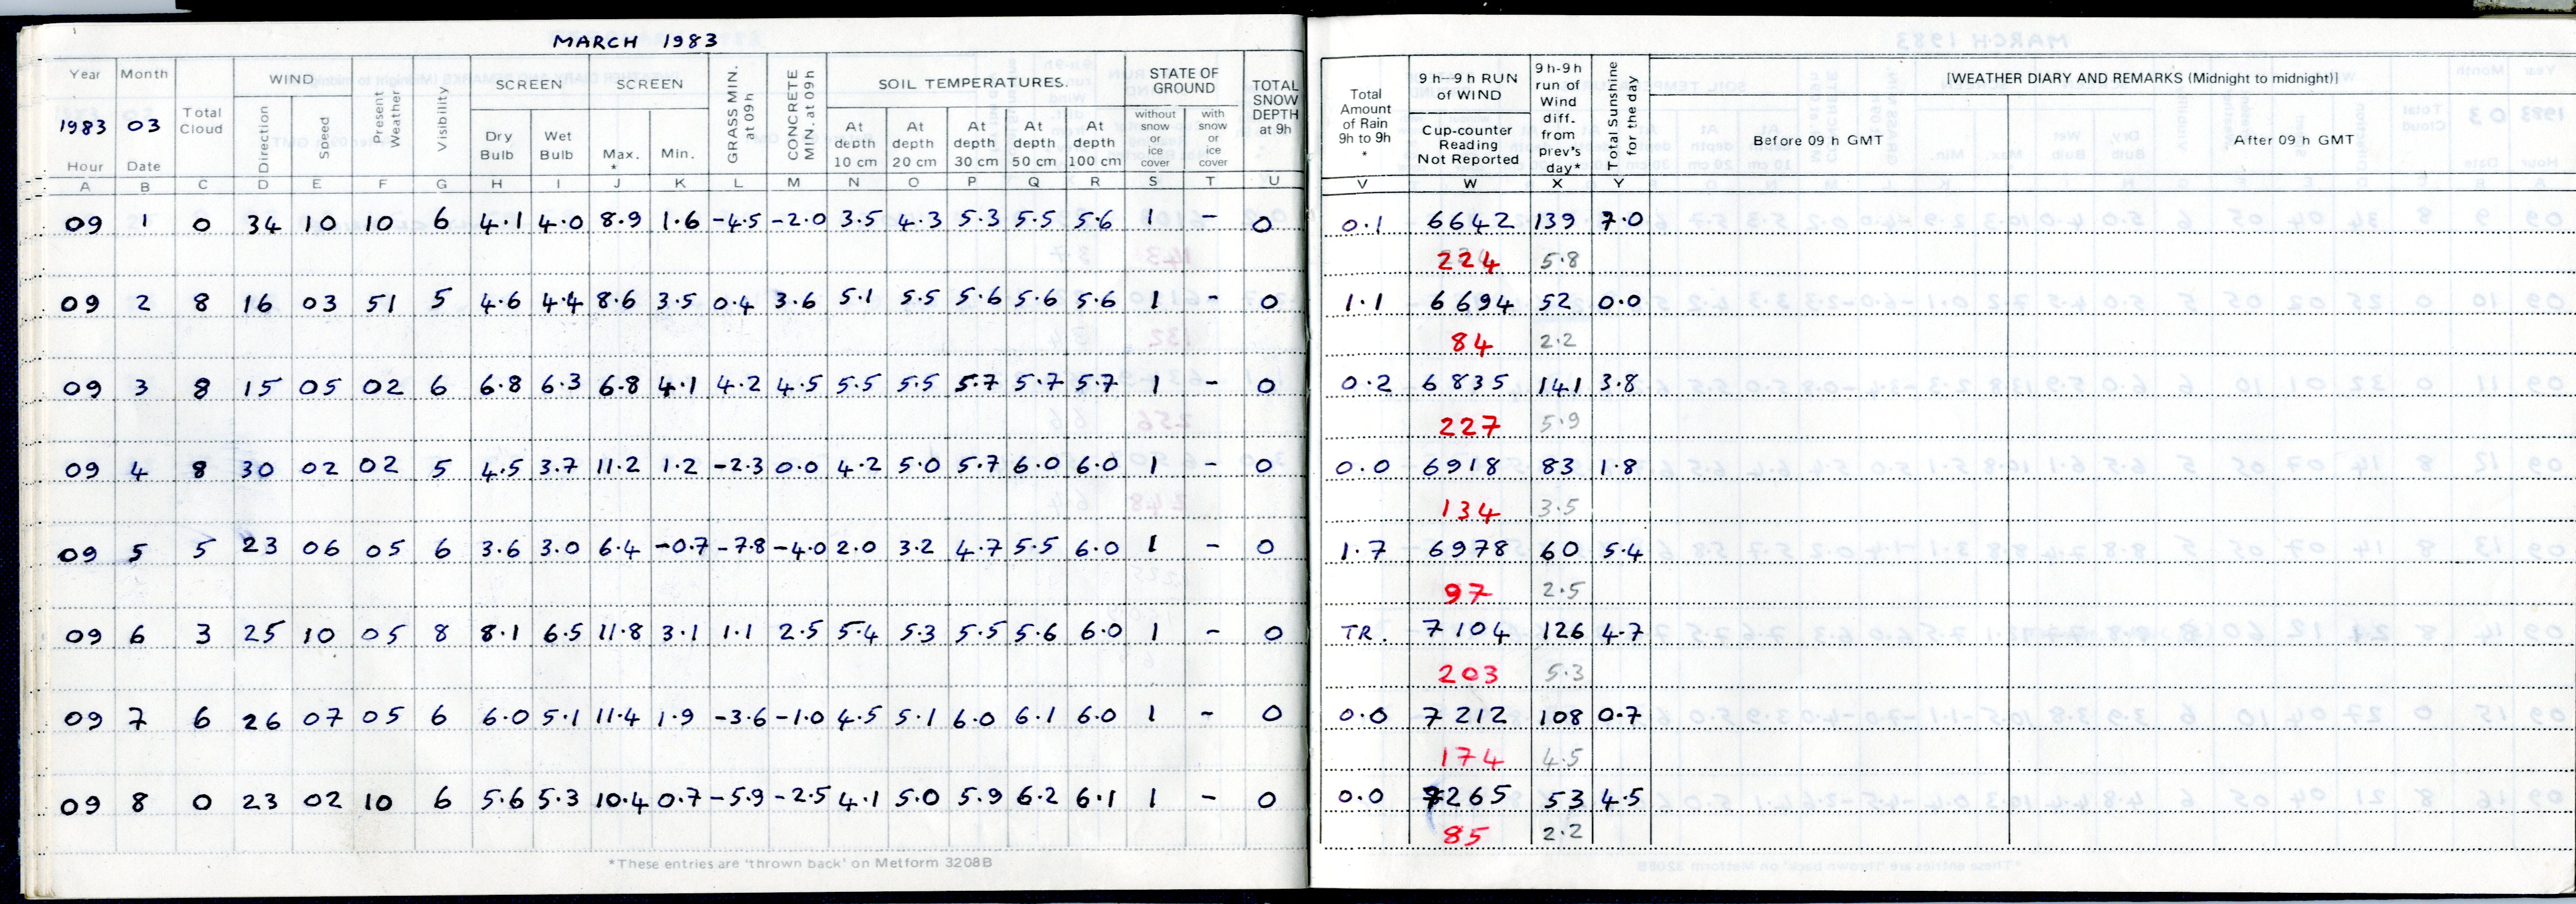 MARCH 1983
Year Month Total Cloud WIND Present Weather Visibility SCREEN SCREEN GRASS MIN. at 09 h CONCRETE MIN. at 09 h SOIL TEMPERATURES. STATE OF GROUND TOTAL SNOW DEPTH at 9h Total Amount of Rain 9h to 9h * 9 h–9 h RUN of WIND 9 h-9h run of Wind diff. from prev's day* Total Sunshine for the day [WEATHER DIARY AND REMARKS (Midnight to midnight)]
1983 03
Hour Date Direction Speed Dry Bulb Wet Bulb Max. * Min. At depth 10 cm At depth 20 cm At depth 30 cm At depth 50 cm At depth 100 cm without snow or ice cover with snow or ice cover Cup-counter Reading Not Reported Before 09 h GMT After 09 h GMT
A B C D E F G H I J K L M N O P Q R S T U V W X Y
09 1 0 34 10 10 6 4.1 4.0 8.9 1.6 -4.5 -2.0 3.5 4.3 5.3 5.5 5.6 1 - 0 0.1 6642 139 7.0
224 5.8
09 2 8 16 03 51 5 4.6 4.4 8.6 3.5 0.4 3.6 5.1 5.5 5.6 5.6 5.6 1 - 0 1.1 6694 52 0.0
84 2.2
09 3 8 15 05 02 6 6.8 6.3 6.8 4.1 4.2 4.5 5.5 5.5 5.7 5.7 5.7 1 - 0 0.2 6835 141 3.8
227 5.9
09 4 8 30 02 02 5 4.5 3.7 11.2 1.2 -2.3 0.0 4.2 5.0 5.7 6.0 6.0 1 - 0 0.0 6918 83 1.8
134 3.5
09 5 5 23 06 05 6 3.6 3.0 6.4 -0.7 -7.8 -4.0 2.0 3.2 4.7 5.5 6.0 1 - 0 1.7 6978 60 5.4
97 2.5
09 6 3 25 10 05 8 8.1 6.5 11.8 3.1 1.1 2.5 5.4 5.3 5.5 5.6 6.0 1 - 0 TR. 7104 126 4.7
203 5.3
09 7 6 26 07 05 6 6.0 5.1 11.4 1.9 -3.6 -1.0 4.5 5.1 6.0 6.1 6.0 1 - 0 0.0 7212 108 0.7
174 4.5
09 8 0 23 02 10 6 5.6 5.3 10.4 0.7 -5.9 -2.5 4.1 5.0 5.9 6.2 6.1 1 - 0 0.0 7265 53 4.5
85 2.2
*These entries are 'thrown back' on Metform 3208B